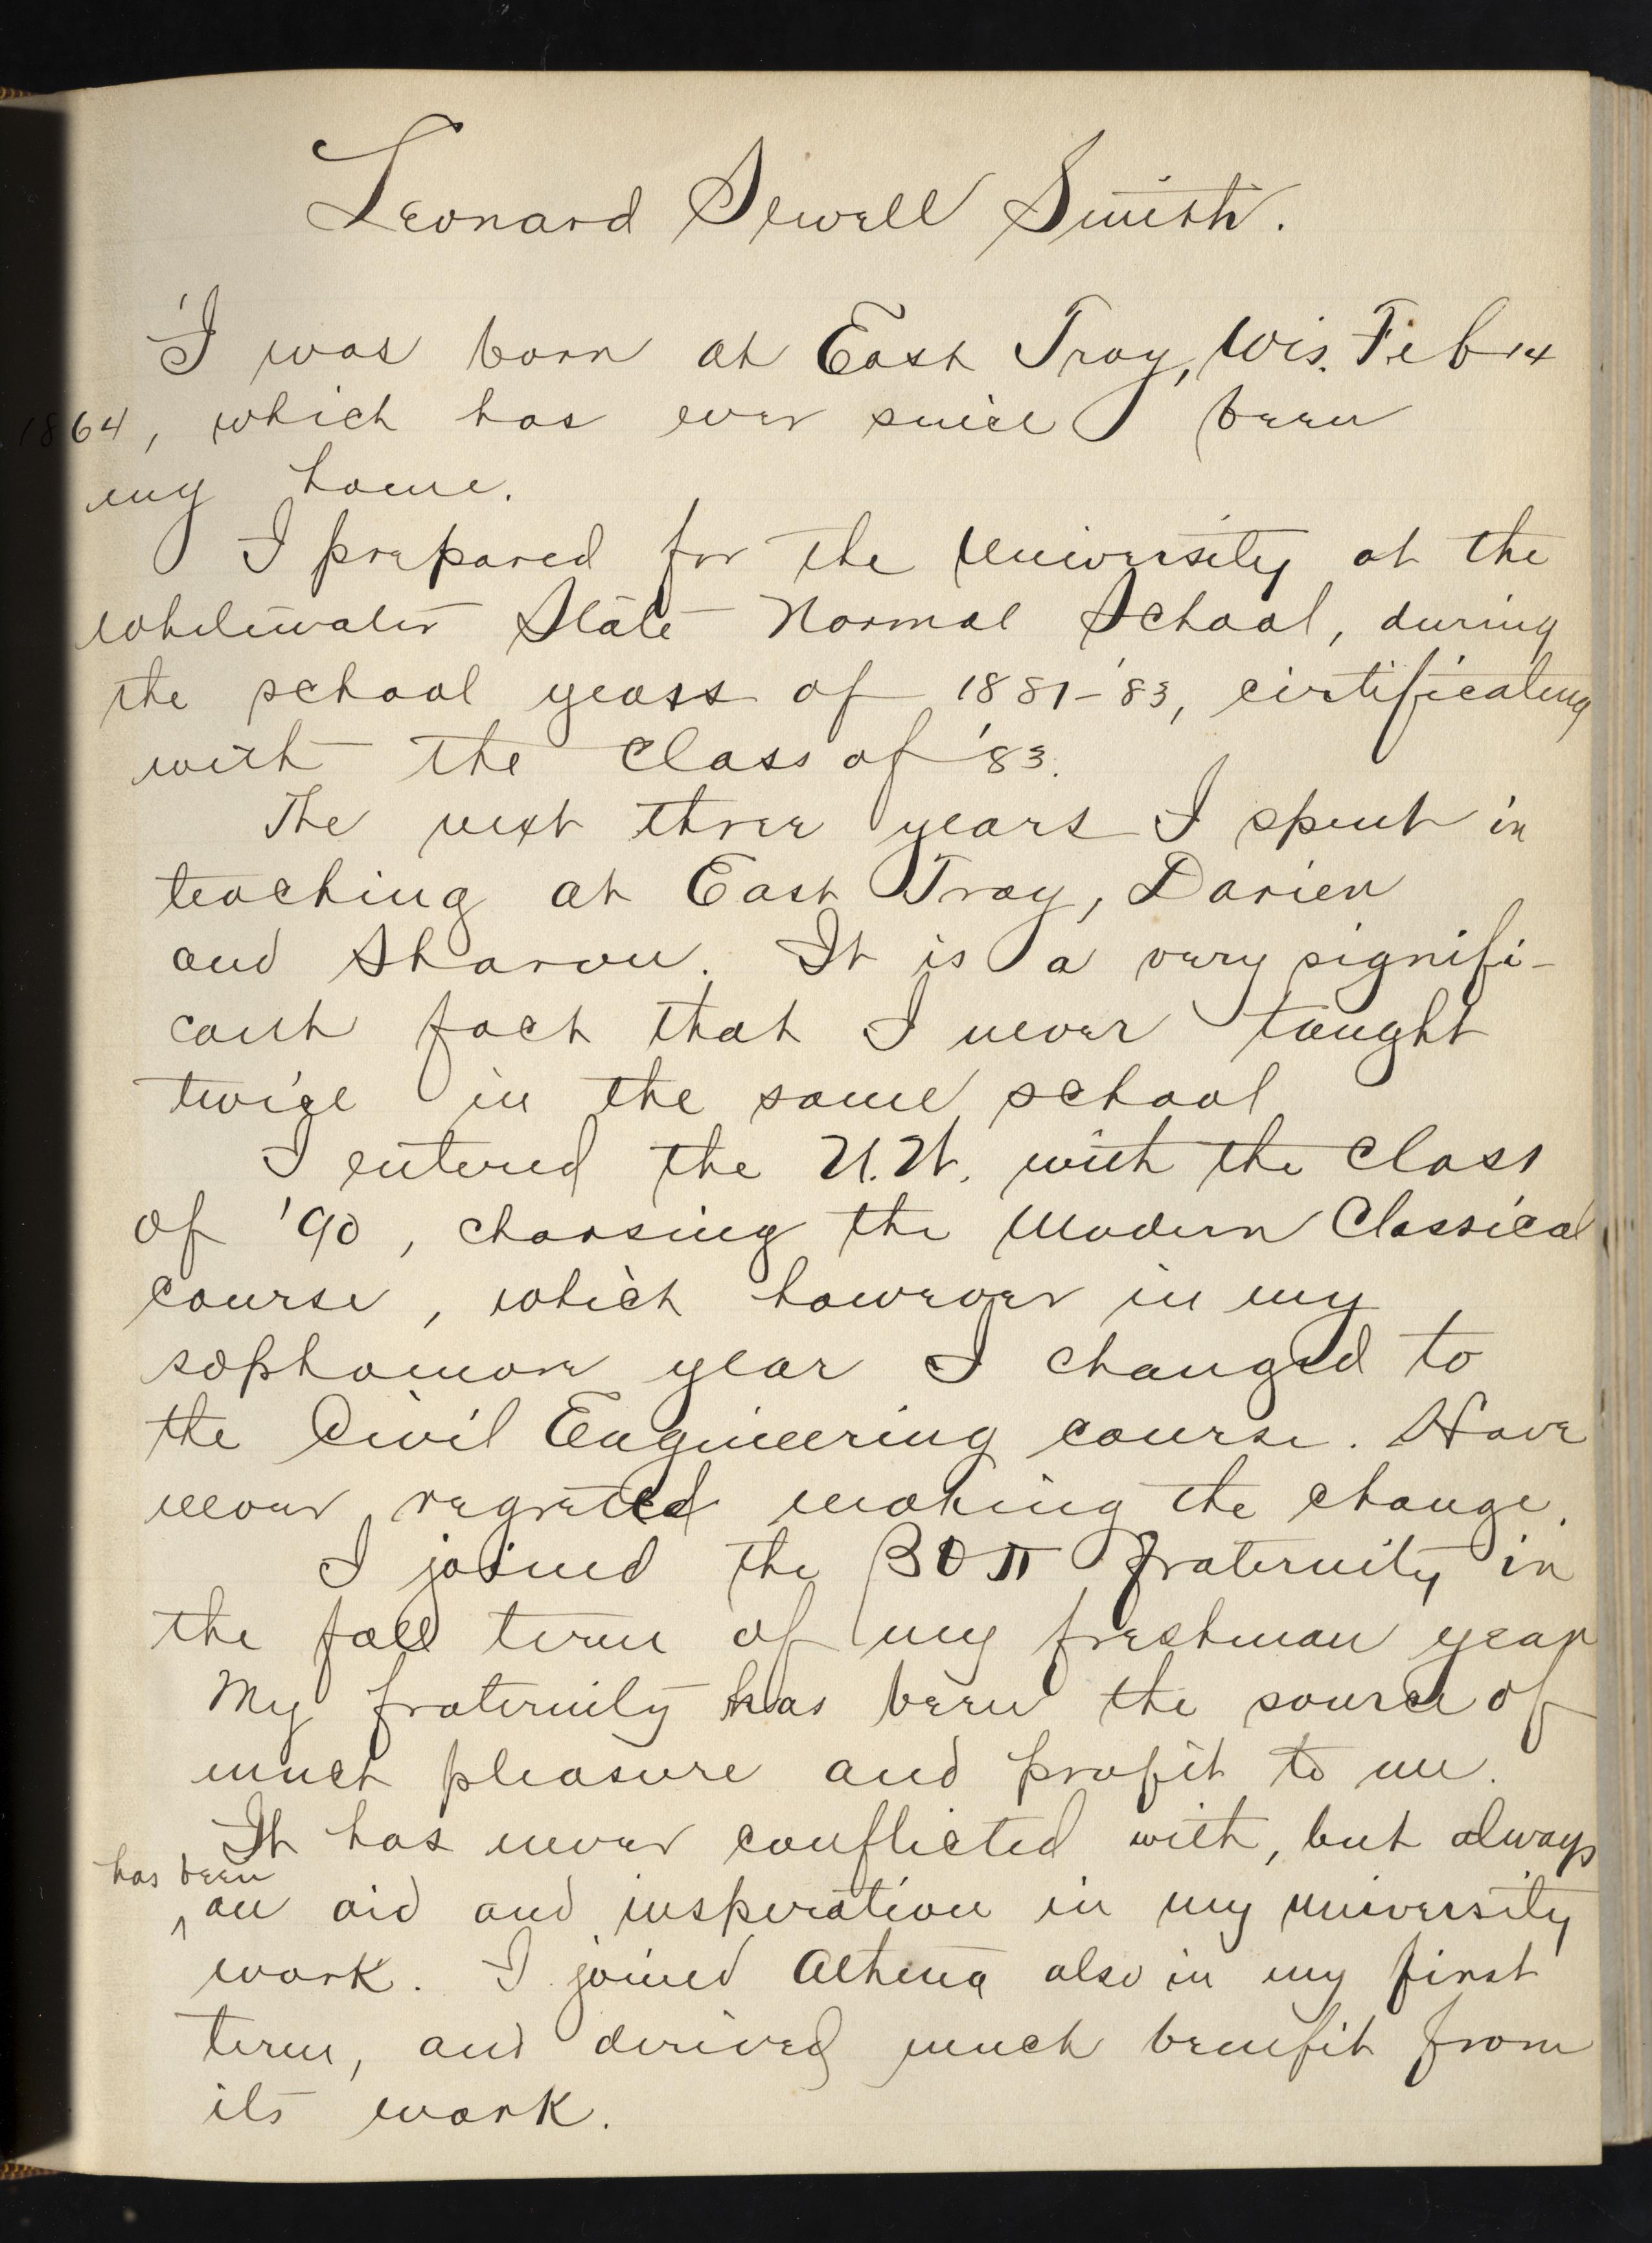 Leonard Sewell Smith.
I was born at East Troy, Wis. Feb 14
1864, which has ever since been
my home.
I prepared for the University at the
Whitewater State Normal School, during
the school years of 1881-'83, certificating
with the class of '83.
The next three years I spent in
teaching at East Troy, Darien
and Sharon. It is a very signifi-
cant fact that I never taught
twice in the same school
I entered the U.W. with the class
of '90, choosing the Modern Classical
course, which however in my
sophomore year I changed to
the Civil Engineering course. Have
never regretted making the change.
I joined the ΒΘΠ fraternity in
the fall term of my freshman year
My fraternity has been the source of
much pleasure and profit to me.
It has never conflicted with, but always
has been
^an aid and insperation in my university
work. I joined Athena also in my first
term, and derived much benefit from
its work.